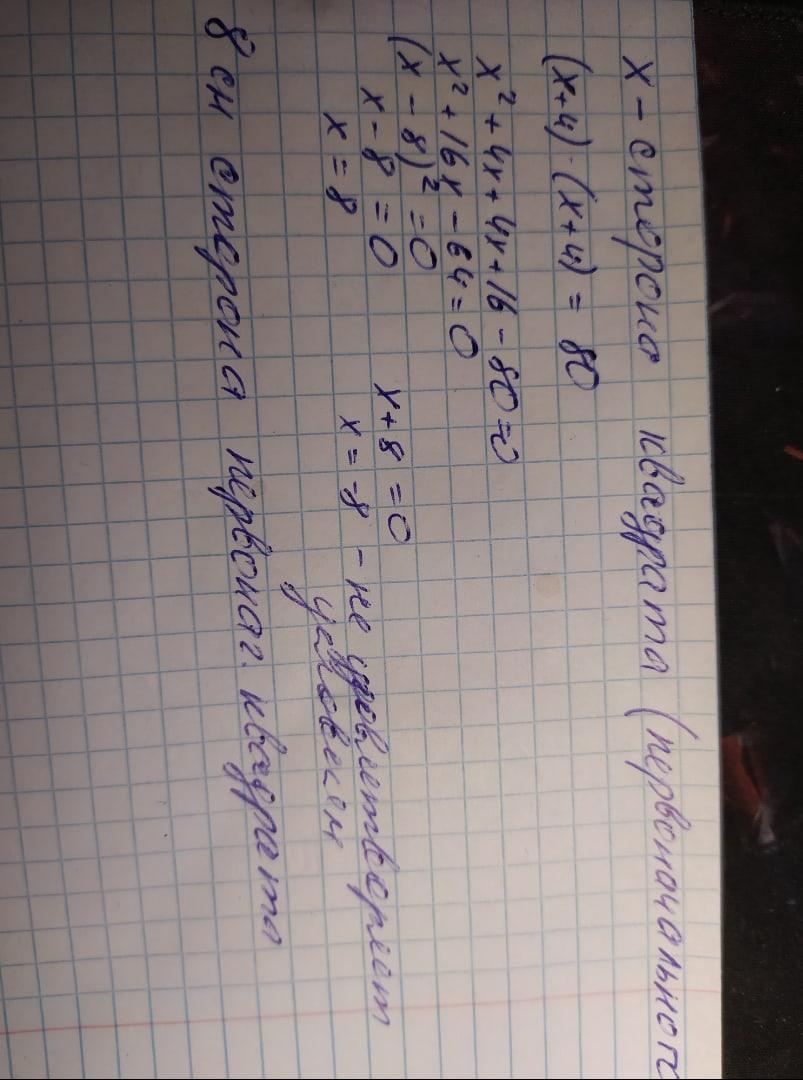 x - сторона квадрата (первоначального
(x+4)·(x+4) = 80
x² + 4x + 4x + 16 - 80 = 0
x² + 16x - 64 = 0
(x - 8)² = 0
x - 8 = 0 x + 8 = 0
x = 8 x = -8 - не удовлетворяет
условиям
8 см сторона первонач. квадрата